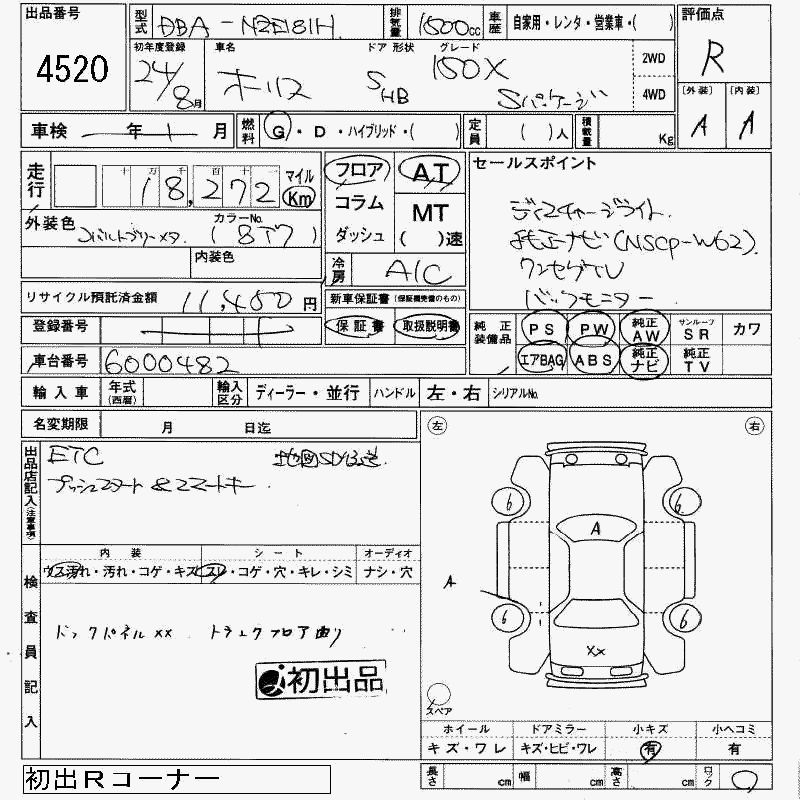 出品番号
4520
型式 DBA-NZE181H 排気量 1500cc 車歴 自家用・レンタ・営業車・( ) 評価点 R
初年度登録 24/8月 車名 ドア 形状 5 HB グレード 150X Sパッケージ 2WD 4WD
〔外装〕 A 〔内装〕 A
車検 年 月 燃料 G・D・ハイブリッド・( ) 定員 ( )人 積載量 Kg
走行 十万 千百十 18,272 マイル Km
フロア コラム ダッシュ
AT MT ( )速
セールスポイント
ディスチャージライト
純正ナビ(NSCP-W62).
ワンセグTV
バックモニター
外装色 カラーNo. ( 8T7 )
内装色
冷房 A/C
リサイクル預託済金額 11,450円
新車保証書 (保証継続書のもの)
保証書 取扱説明書
登録番号
車台番号 6000482
純正装備品 PS PW 純正AW サンルーフSR カワ
エアBAG ABS 純正ナビ 純正TV
輸入車 年式(西暦) 輸入区分 ディーラー・並行 ハンドル 左・右 シリアルNo.
名変期限 月 日迄
出品店記入(注意事項)
ETC 地図SD
プッシュスタート &スマートキー
内装 シート オーディオ
ウス汚れ・汚れ・コゲ・キズ スレ・コゲ・穴・キレ・シミ ナシ・穴
検査員記入
バックパネルxx トランクフロア曲り
初出品
左 右
6 6
A
A
6 6
xx
スペア
ホイール ドアミラー 小キズ 小ヘコミ
キズ・ワレ キズ・ヒビ・ワレ 有 有
長さ cm 幅 cm 高さ cm ロック
初出Rコーナー